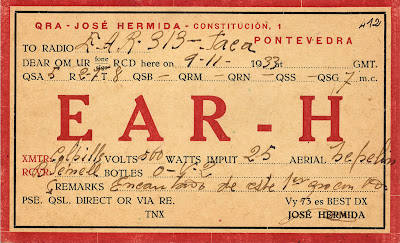 QRA - JOSÉ HERMIDA - CONSTITUCIÓN, 1
412
PONTEVEDRA
TO RADIO E.A.R.313-Jaca
DEAR OM UR fone sigs RCD here on 9-11- 1933 at GMT.
QSA 5 R 6-7 T 8 QSB - QRM - QRN - QSS - QSG 7 m.c.
EAR-H
XMTR: Colpitts VOLTS 500 WATTS IMPUT 25 AERIAL Zepelin
RCVR: Schnell BOTLES 0-V-2
REMARKS Encantado de este 1er qso con vos
PSE. QSL. DIRECT OR VIA RE. Vy 73 es BEST DX
TNX JOSÉ HERMIDA